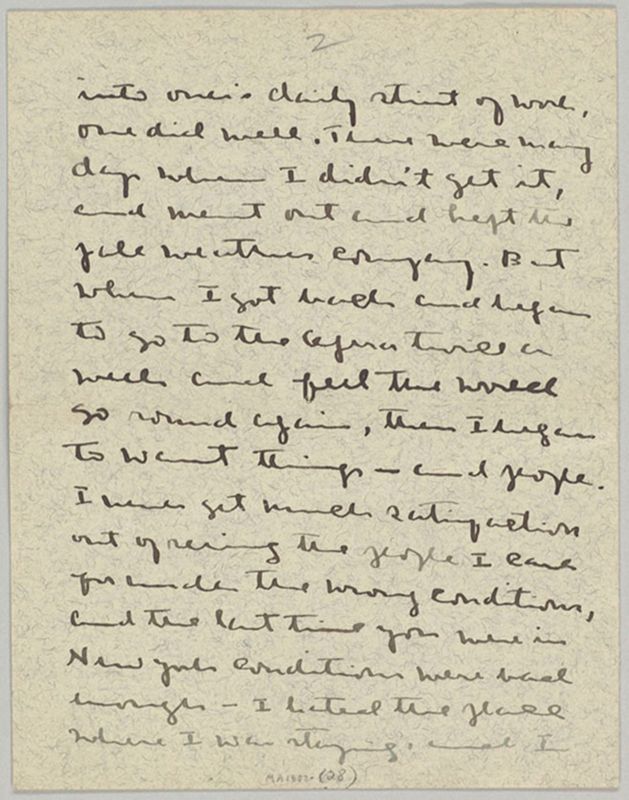 2
into one's daily stint of work,
one did well. There were many
days when I didn't get it,
and went out and kept the
fall weather company. But
when I got back and began
to go to the opera twice a
week and feel the world
go round again, then I began
to want things — and people.
I never get much satisfaction
out of seeing the people I care
for under the wrong conditions,
and the last time you were in
New York conditions were bad
enough — I hated the place
where I was staying, and I
MA1602 (28)